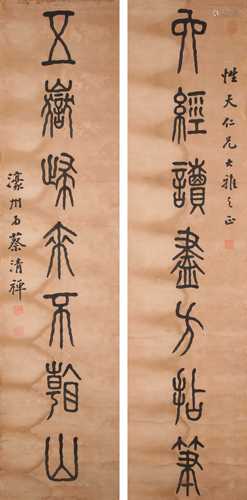 性天仁兄大雅之正
六經讀盡方拈筆
五嶽歸來不看山
濠州蔡清禪